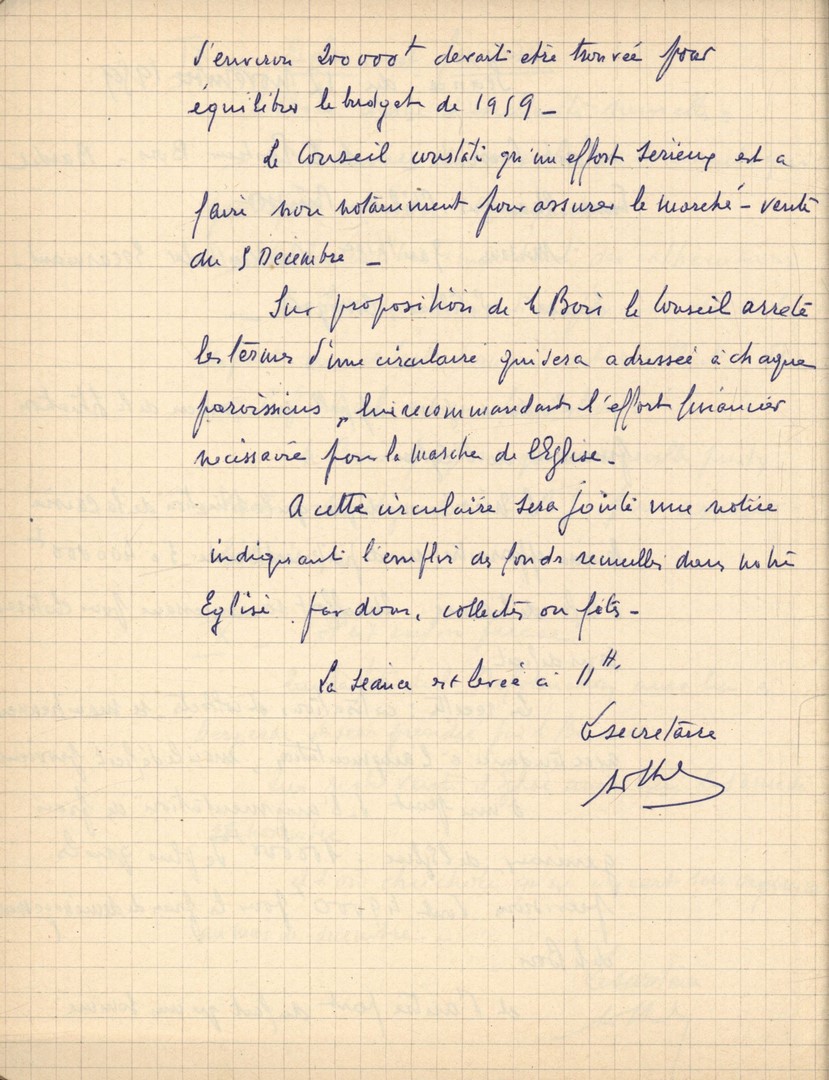 d'environ 200000f devait être trouvée pour
équilibrer le budget de 1959 _
Le Conseil constate qu'un effort sérieux est a
faire notamment pour assurer le marché - vente
du 5 Decembre _
Sur proposition de Mr Bois le Conseil arrete
les termes d'une circulaire qui sera adressée à chaque
paroissiens, lui recommandant l'effort financier
nécessaire pour la marche de l'Eglise.
A cette circulaire sera jointe une notice
indiquant l'emploi des fonds recueillis dans notre
Eglise par dons, collectes ou fêtes _
La séance est levée à 11H.
Le secretaire